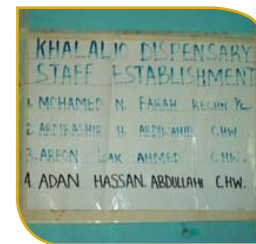 KHALALIO DISPENSARY
STAFF ESTABLISHMENT
1. MOHAMED N. FARAH KECHN I/C
2. ABDIRASHID H. ABDIWAHID C.H.W.
3. AHMED C.H.W.
4. ADAN HASSAN ABDULLAHI C.H.W.